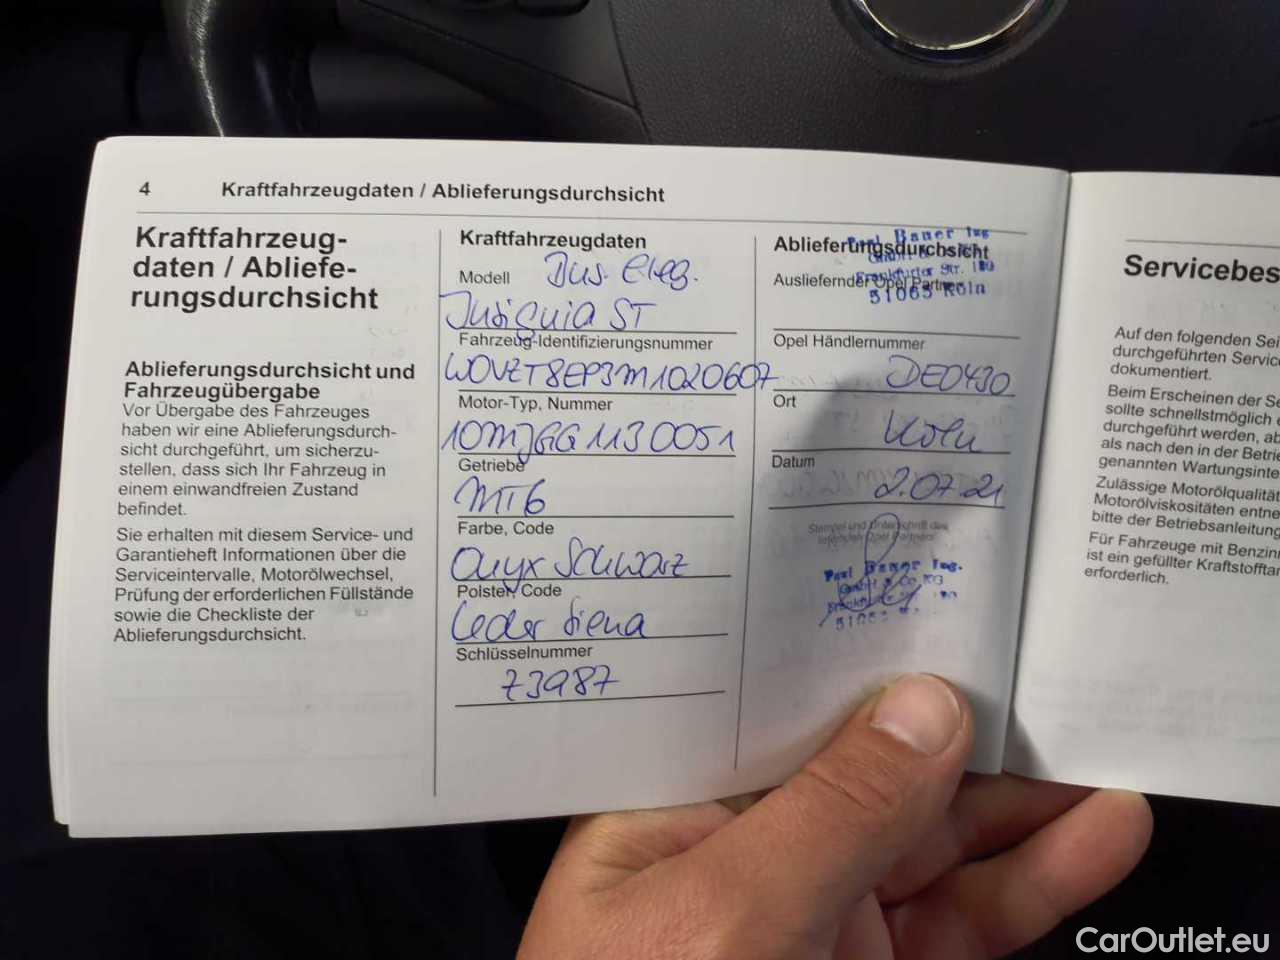 4 Kraftfahrzeugdaten / Ablieferungsdurchsicht
Kraftfahrzeug-
daten / Abliefe-
rungsdurchsicht
Ablieferungsdurchsicht und
Fahrzeugübergabe
Vor Übergabe des Fahrzeuges
haben wir eine Ablieferungsdurch-
sicht durchgeführt, um sicherzu-
stellen, dass sich Ihr Fahrzeug in
einem einwandfreien Zustand
befindet.
Sie erhalten mit diesem Service- und
Garantieheft Informationen über die
Serviceintervalle, Motorölwechsel,
Prüfung der erforderlichen Füllstände
sowie die Checkliste der
Ablieferungsdurchsicht.
Kraftfahrzeugdaten
Modell Bus. Eleg.
Insignia ST
Fahrzeug-Identifizierungsnummer
W0VZT8EP3M1020607
Motor-Typ, Nummer
Getriebe
MT6
Farbe, Code
Onyx Schwarz
Polster, Code
Leder Siena
Schlüsselnummer
73987
Ablieferungsdurchsicht
Paul Bauer Ing.
GmbH & Co. KG
Frankfurter Str. 180
51065 Köln
Ausliefernder Opel Partner
Opel Händlernummer
DE0430
Ort
Köln
Datum
2.07.21
Stempel und Unterschrift des
Opel Partners
Paul Bauer Ing.
GmbH & Co. KG
Servicebes
Auf den folgenden Sei
durchgeführten Service
dokumentiert.
Beim Erscheinen der Se
sollte schnellstmöglich
durchgeführt werden, ab
als nach den in der Betrie
genannten Wartungsinte
Zulässige Motorölqualität
Motorölviskositäten entne
bitte der Betriebsanleitung
Für Fahrzeuge mit Benzin
ist ein gefüllter Kraftstofftan
erforderlich.
CarOutlet.eu